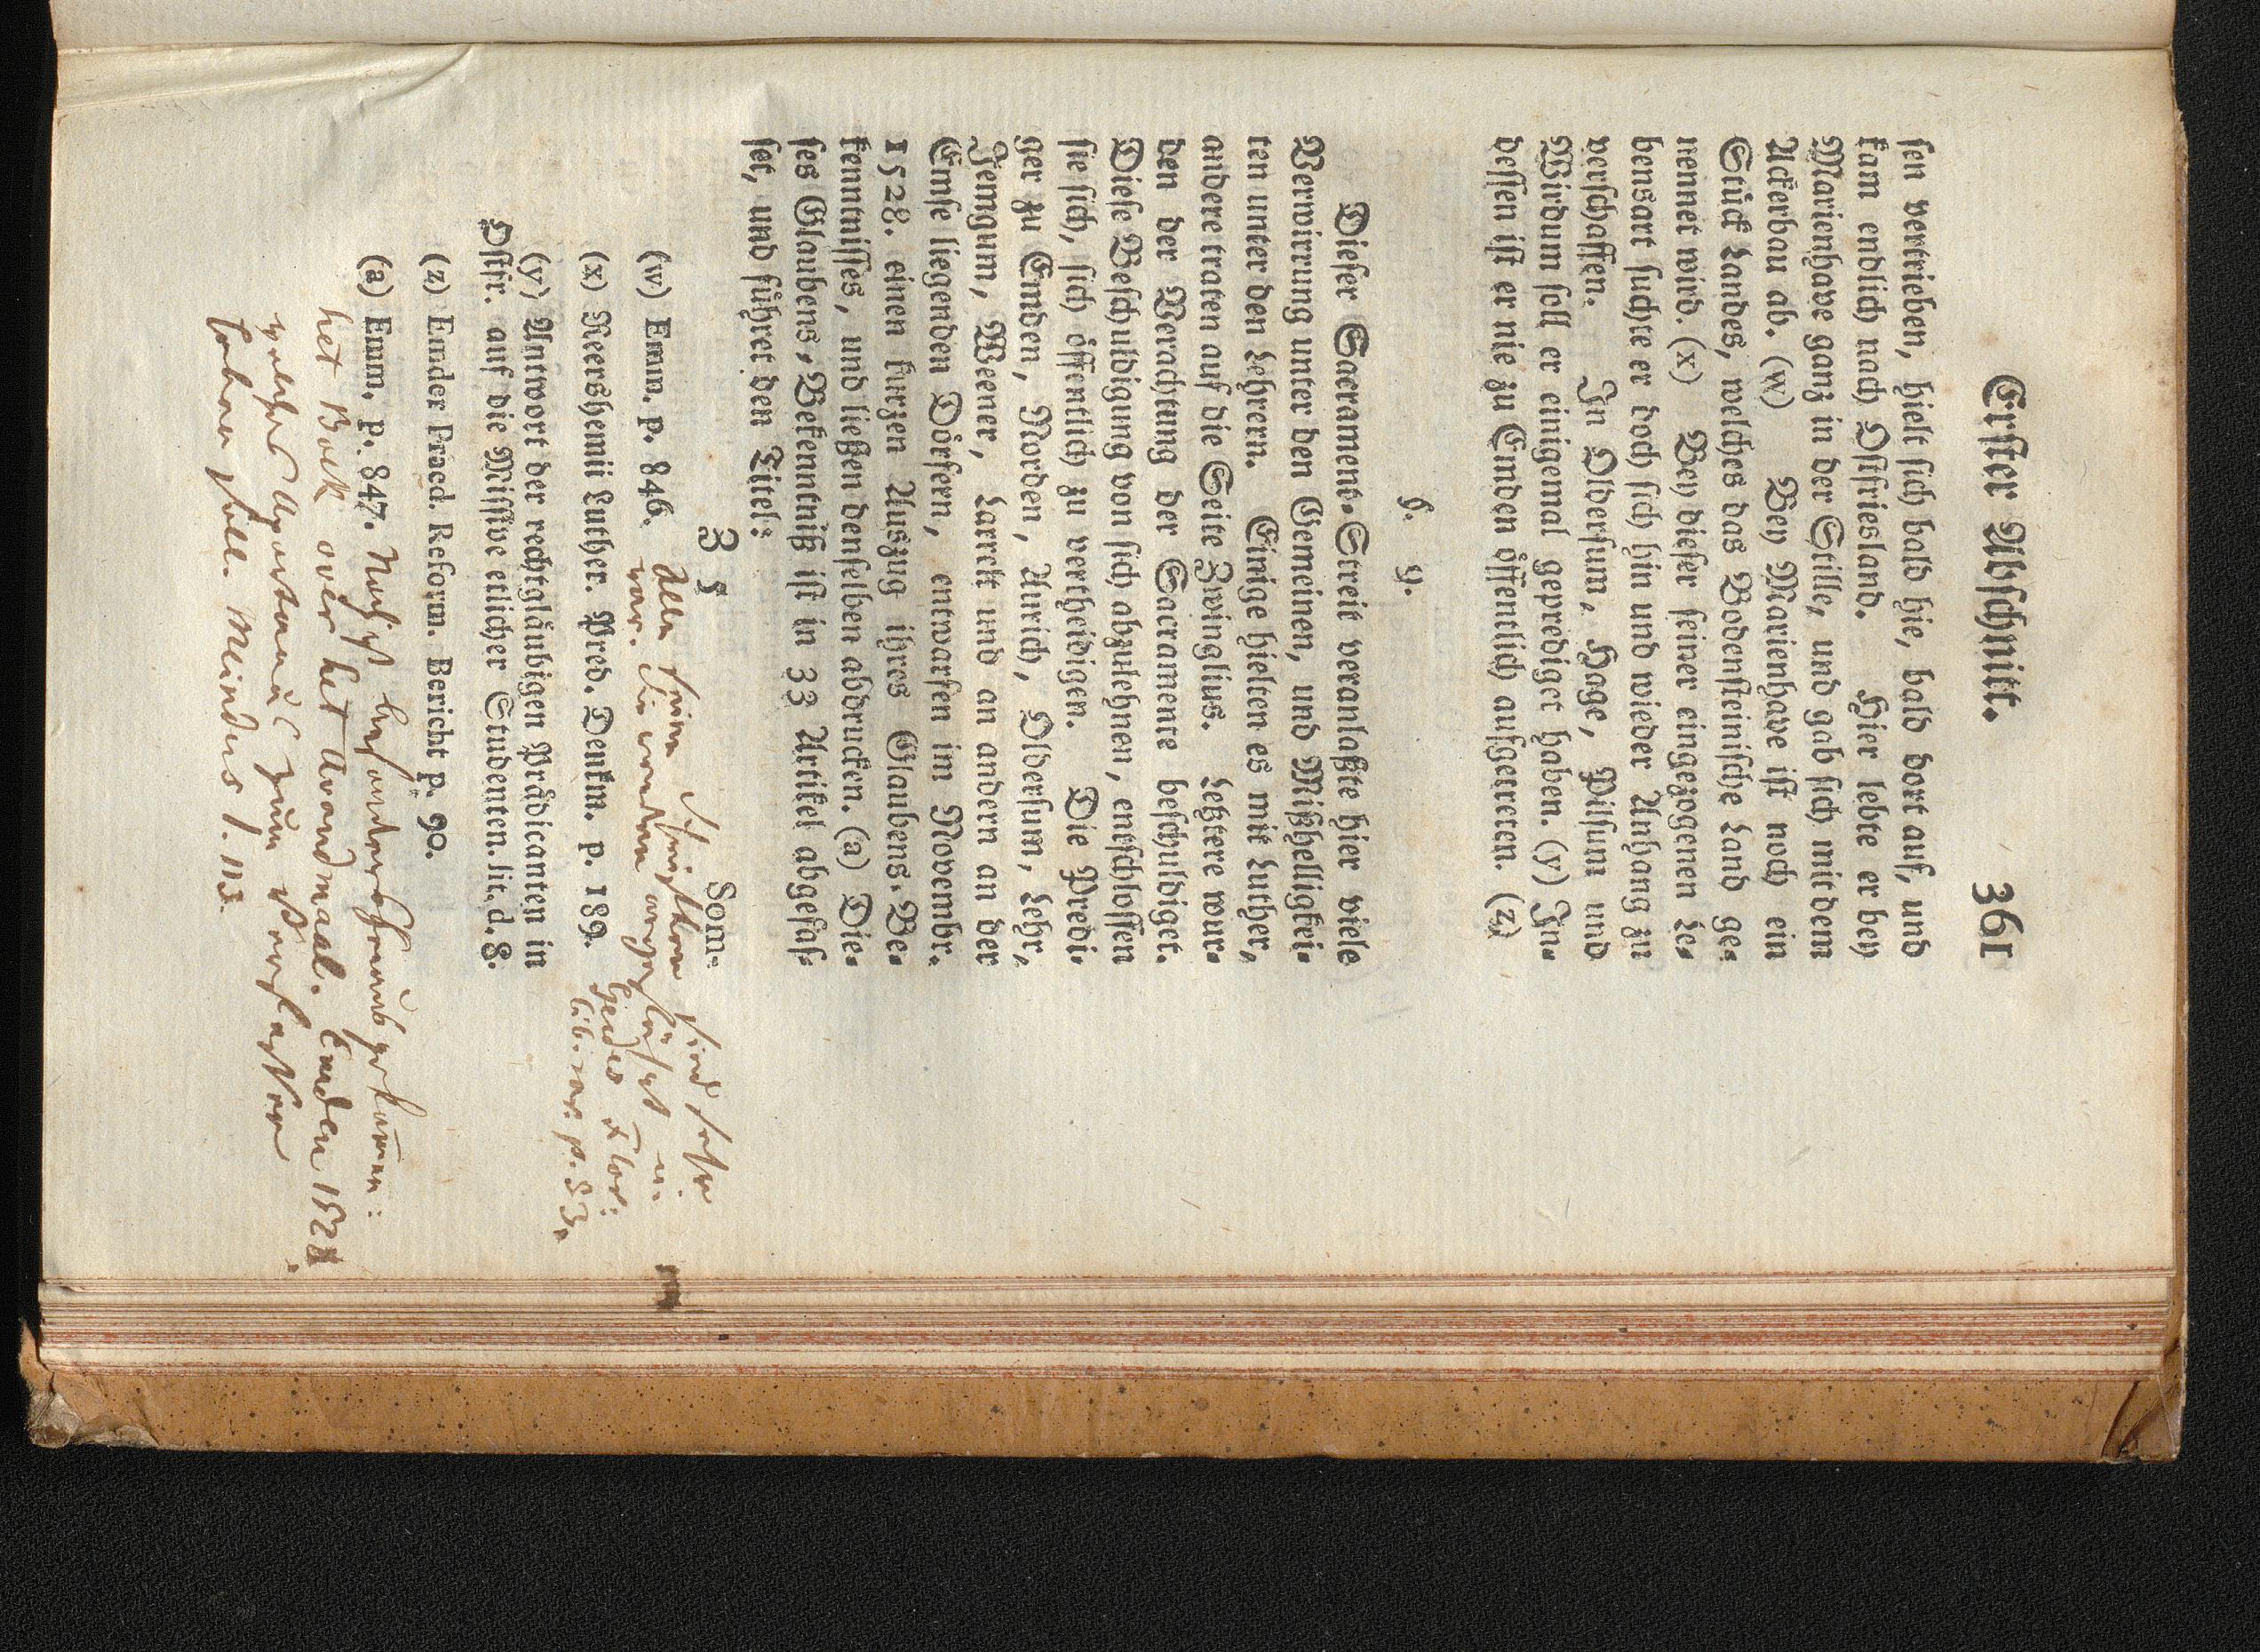 Erster Abschnitt. 361
sen vertrieben, hielt sich bald hie, bald dort auf, und
kam endlich nach Ostfriesland. Hier lebte er bey
Marienhave ganz in der Stille, und gab sich mit dem
Ackerbau ab. (w) Bey Marienhave ist noch ein
Stück Landes, welches das Bodensteinische Land ge-
nennet wird. (x) Bey dieser seiner eingezogenen Le-
bensart suchte er doch sich hin und wieder Anhang zu
verschaffen. In Oldersum, Hage, Pilsum und
Wirdum soll er einigemal geprediget haben. (y) In-
dessen ist er nie zu Emden öffentlich aufgetreten. (z)
§. 9.
Dieser Sacrament-Streit veranlaßte hier viele
Verwirrung unter den Gemeinen, und Mißhelligkei-
ten unter den Lehrern. Einige hielten es mit Luther,
andere traten auf die Seite Zwinglius. Letztere wur-
den der Verachtung der Sacramente beschuldiget.
Diese Beschuldigung von sich abzulehnen, entschlossen
sie sich, sich öffentlich zu vertheidigen. Die Predi-
ger zu Emden, Norden, Aurich, Oldersum, Lehr,
Jemgum, Weener, Larrelt und an andern an der
Emse liegenden Dörfern, entwarfen im Novembr.
1528. einen kurzen Auszug ihres Glaubens-Be-
kenntnisses, und ließen denselben abdrucken. (a) Die-
ses Glaubens-Bekenntniß ist in 33 Artikel abgefas-
set, und führet den Titel:
Z 5 Som-
(w) Emm. p. 846. Alle seine Schriften sind sehr
rar. Sie werden angeführt in
Gerdes Flor:
lib. rar. p. 53.
(x) Reershemii Luther. Pred. Denkm. p. 189.
(y) Antwort der rechtgläubigen Prädicanten in
Ostfr. auf die Missive etlicher Studenten. lit. d. 8.
(z) Emder Praed. Reform. Bericht p. 90.
(a) Emm. p. 847. Noch ist besonders herausgekommen:
het Boek over het Avondmaal. Emden 1528.
welches Aportanus zum Verfasser
haben soll. Meinders p. 113.